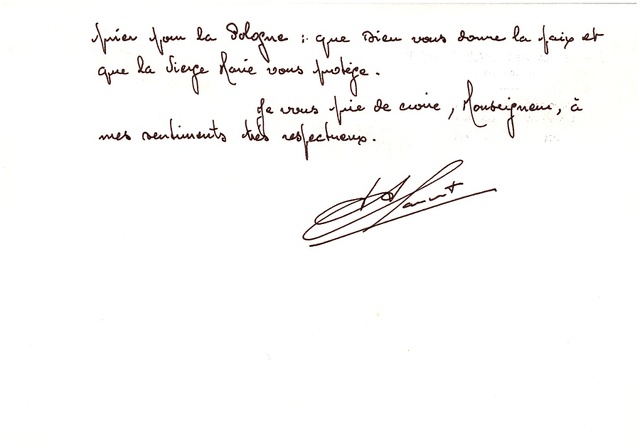 prier pour la Pologne : que Dieu vous donne la paix et
que la Vierge Marie vous protège.
Je vous prie de croire, Monseigneur, à
mes sentiments très respectueux.